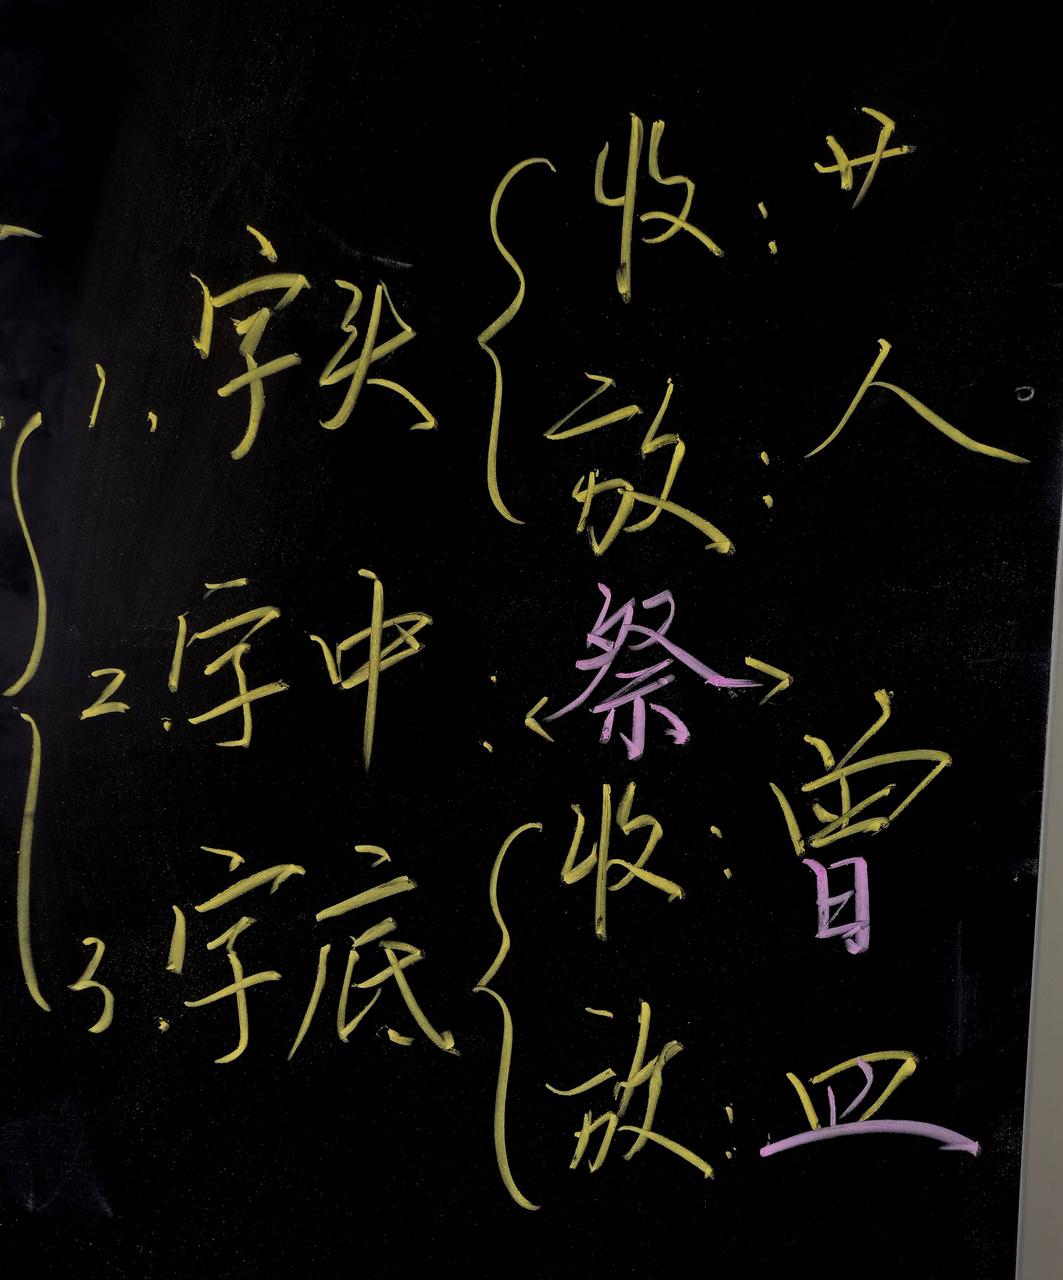 1. 字头
收: 艹
放: 人
2. 字中: 祭
3. 字底
收: 曾
放: 皿